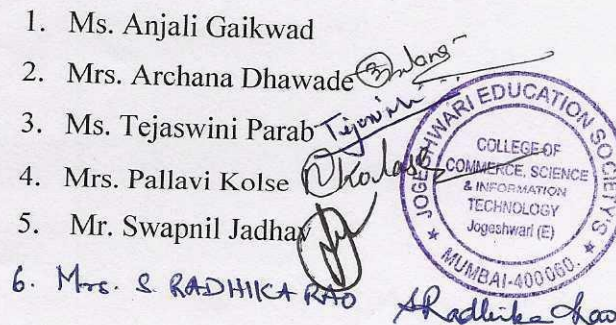 1. Ms. Anjali Gaikwad
2. Mrs. Archana Dhawade
3. Ms. Tejaswini Parab Tejaswini
4. Mrs. Pallavi Kolse
5. Mr. Swapnil Jadhav
6. Mrs. S. RADHIKA RAO SRadhika Rao
JOGESHWARI EDUCATION SOCIETY'S
COLLEGE OF
COMMERCE, SCIENCE
& INFORMATION
TECHNOLOGY
Jogeshwari (E)
★ MUMBAI-400060. ★